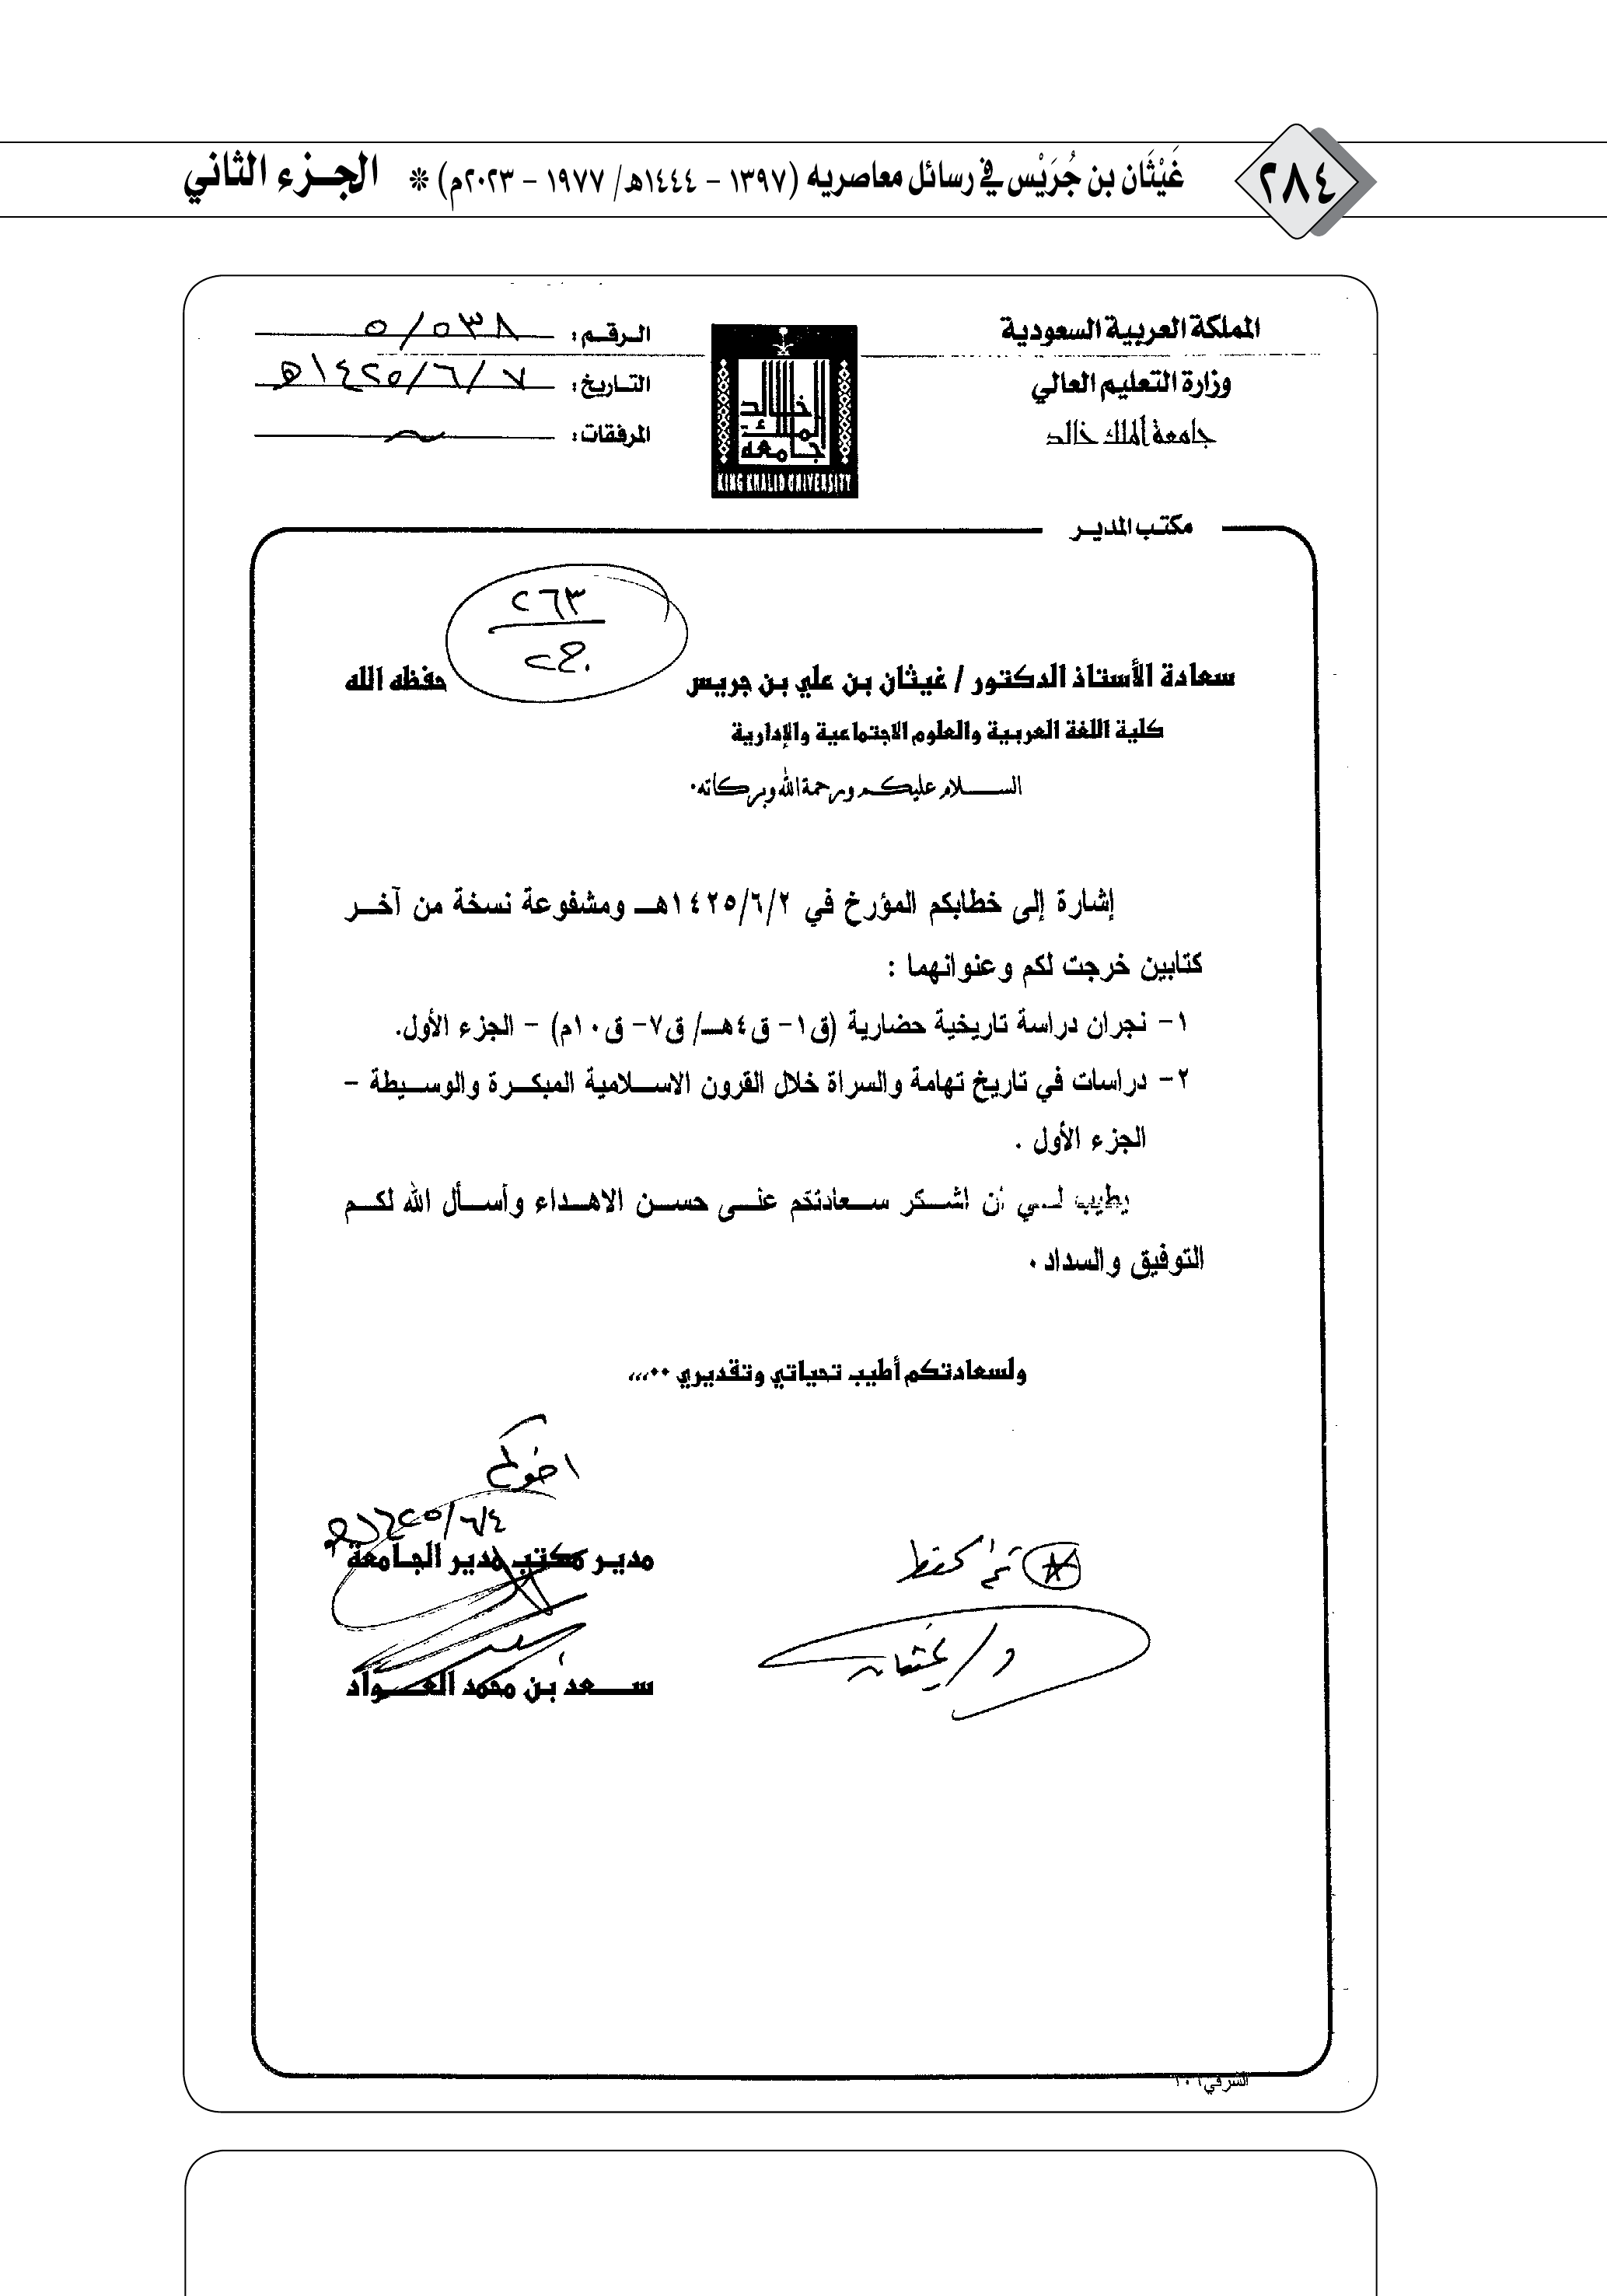 ٢٨٤
غَيْثَان بن جُرَيْس في رسائل معاصريه (١٣٩٧ - ١٤٤٤هـ/ ١٩٧٧ - ٢٠٢٣م) * الجـزء الثاني
المملكة العربية السعودية
وزارة التعليم العالي
جامعة الملك خالد
خالد
الملك
جامعة
KING KHALID UNIVERSITY
الـرقـم : ٥/٥٣٨
التـاريخ : ١٤٢٥/٦/٧هـ
المرفقات :
مكتـب المديـر
٢٦٣
سعادة الأستاذ الدكتور / غيثان بن علي بن جريس حفظه الله
كلية اللغة العربية والعلوم الاجتماعية والإدارية
الســـلام عليكـم ورحمة الله وبركاته.
إشارة إلى خطابكم المؤرخ في ١٤٢٥/٦/٢هـ ومشفوعة نسخة من آخـر
كتابين خرجت لكم وعنوانهما :
١- نجران دراسة تاريخية حضارية (ق١- ق٤هـ/ ق٧- ق١٠م) - الجزء الأول.
٢- دراسات في تاريخ تهامة والسراة خلال القرون الاسـلامية المبكـرة والوسـيطة -
الجزء الأول .
يطيب لـي أن اشـكر سـعادتكم على حسـن الاهـداء وأسـأل الله لكـم
التوفيق والسداد .
ولسعادتكم أطيب تحياتي وتقديري ..,,,
اخوكم
١٤٢٥/٦/٤هـ
مديـر مكتب مدير الجـامعة
ســعد بن محمد العــواد
تم الحفظ
د/غيثان